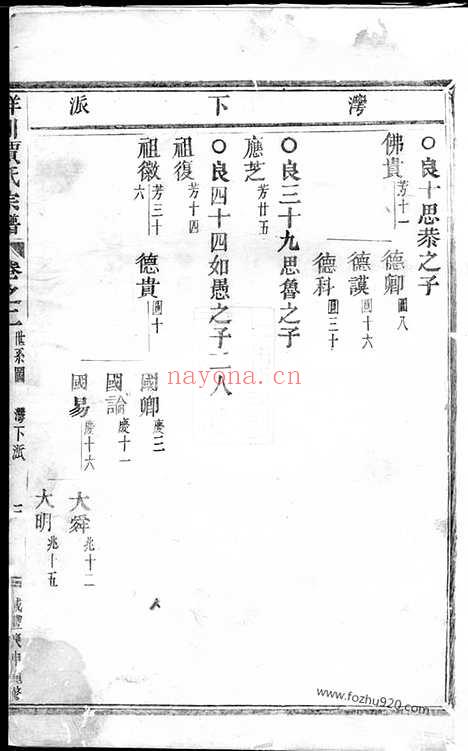 灣下派
○良十思恭之子
佛貴芳十一
德卿圓八
德謨圓十六
德科圓三十
○良三十九思魯之子
應芝芳廿五
○良四十四如愚之子二人
祖復芳十四
祖徽芳三十六
德貴圓十
國卿慶三
國論慶十一
國易慶十六
大舜兆十二
大明兆十五
賈氏宗譜
卷之二
世系圖
灣下派
咸豐庚申
nayona.cn
www.fozhu920.com